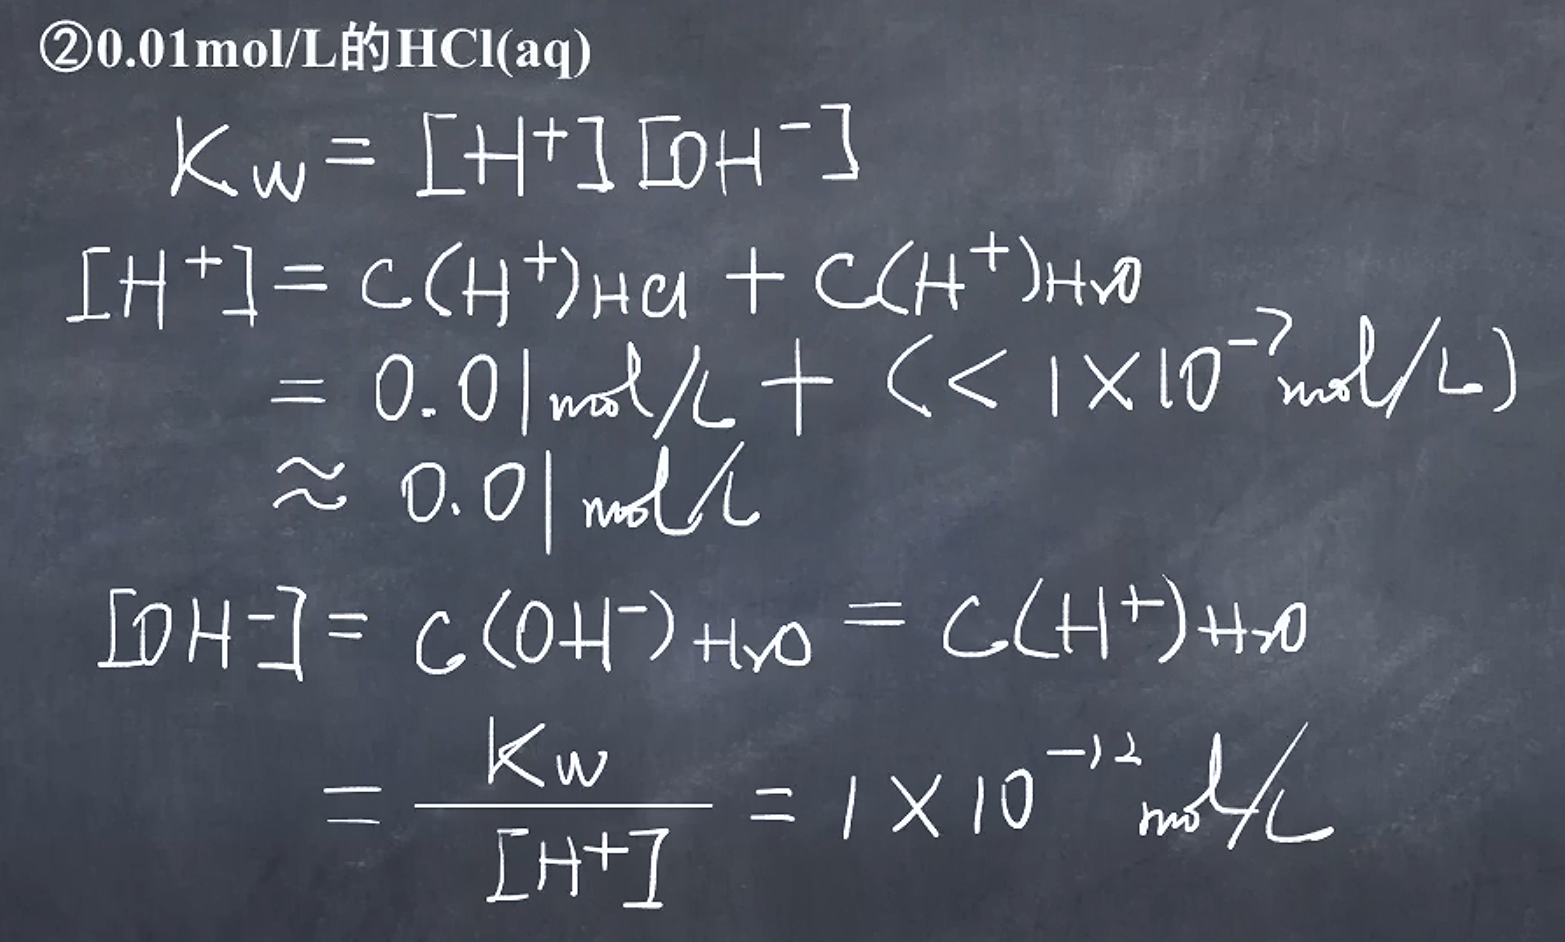 ②0.01mol/L的HCl(aq)
Kw = [H⁺][OH⁻]
[H⁺] = C(H⁺)HCl + C(H⁺)H₂O
= 0.01mol/L + (< 1×10⁻⁷mol/L)
≈ 0.01mol/L
[OH⁻] = C(OH⁻)H₂O = C(H⁺)H₂O
= Kw/[H⁺] = 1×10⁻¹²mol/L